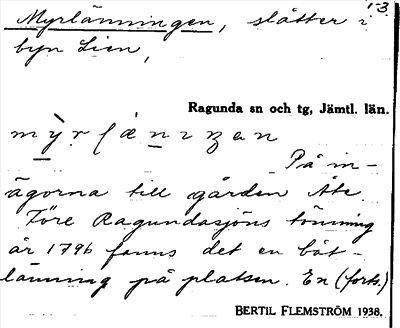 1-3.
Myrlänningen, slåtter i
byn Lien,
Ragunda sn och tg, Jämtl. län.
På in-
ägorna till gården Åte.
Före Ragundasjöns tömning
år 1796 fanns det en båt-
länning på platsen. En (forts.)
BERTIL FLEMSTRÖM 1938.